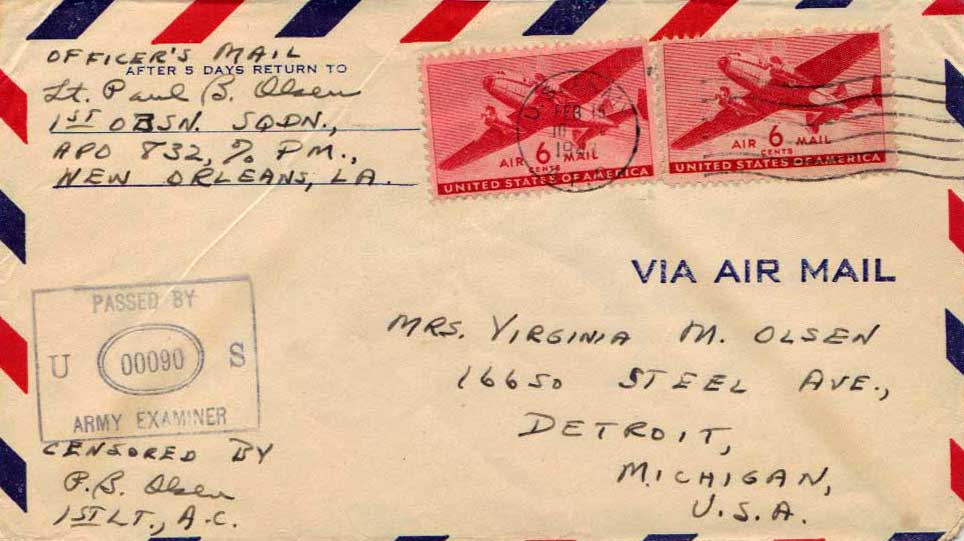 OFFICER'S MAIL
AFTER 5 DAYS RETURN TO
Lt. Paul B. Olsen
1ST OBSN. SQDN.,
APO 832, % P.M.,
NEW ORLEANS, LA.
AIR 6 CENTS MAIL
UNITED STATES OF AMERICA
AIR 6 CENTS MAIL
UNITED STATES OF AMERICA
FEB 15
VIA AIR MAIL
MRS. VIRGINIA M. OLSEN
16650 STEEL AVE.,
DETROIT,
MICHIGAN,
U.S.A.
PASSED BY
U 00090 S
ARMY EXAMINER
CENSORED BY
P.B. Olsen
1ST LT., A.C.